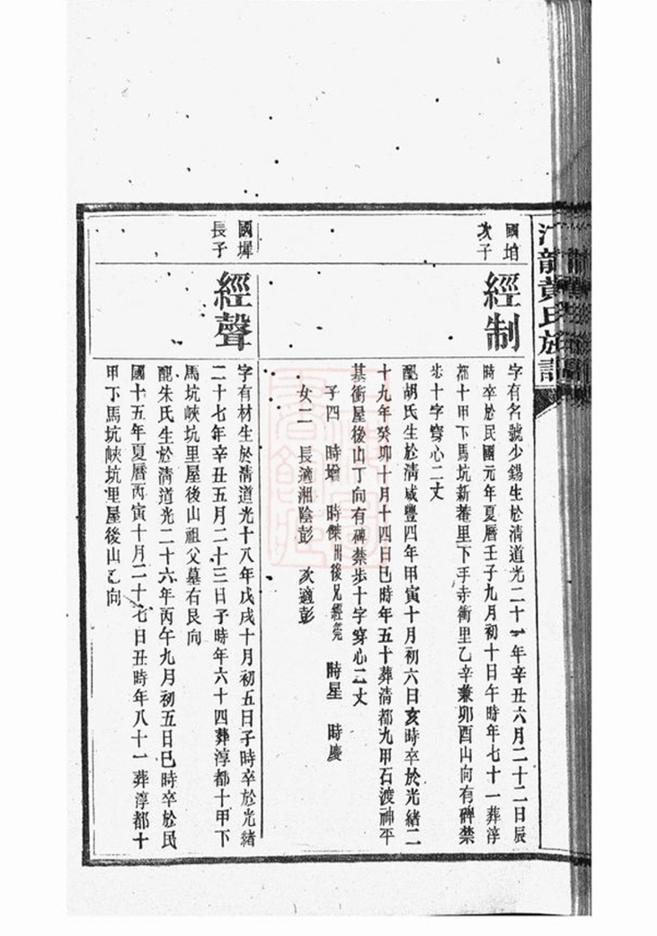 龍黃氏族譜
國堷
次子
經制
字有名號少錫生於清道光二十一年辛丑六月二十二日辰
時卒於民國元年夏曆壬子九月初十日午時年七十一葬淳
都十甲下馬坑新菴里下手寺衝里乙辛兼卯酉山向有碑禁
步十字穿心二丈
配胡氏生於清咸豐四年甲寅十月初六日亥時卒於光緒二
十九年癸卯十月十四日巳時年五十葬清都九甲石渡神平
基衝屋後山丁向有碑禁步十字穿心二丈
子四 時增 時傑出後兄經 時星 時慶
女二 長適湘陰彭 次適彭
國墀
長子
經聲
字有材生於清道光十八年戊戌十月初五日子時卒於光緒
二十七年辛丑五月二十三日子時年六十四葬淳都十甲下
馬坑峽坑里屋後山祖父墓右艮向
配朱氏生於清道光二十六年丙午九月初五日巳時卒於民
國十五年夏曆丙寅十月二十七日丑時年八十一葬淳都十
甲下馬坑峽坑里屋後山乙向